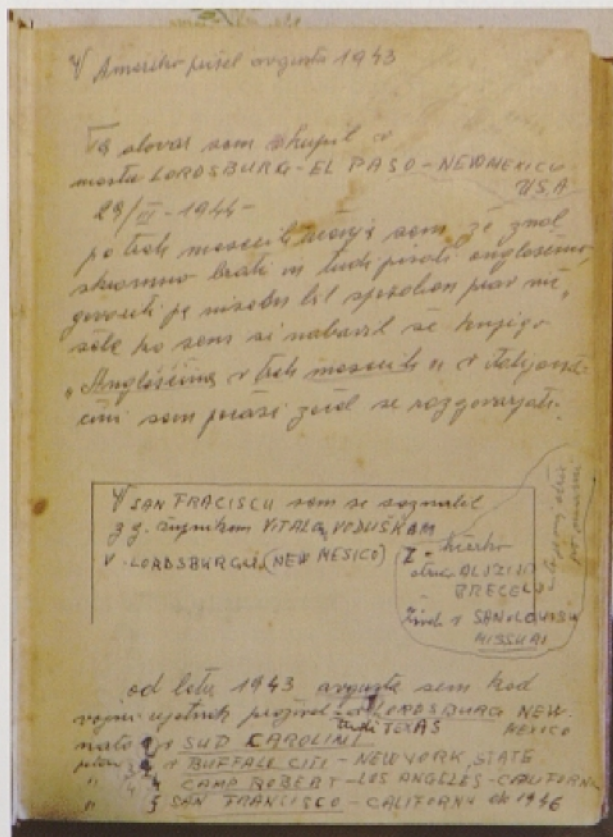 V Ameriko prišel avgusta 1943
Ta slovar sem skupil v
mestu LORDSBURG - EL PASO - NEWMEXICO
USA
29/VI - 1944 -
po treh mesecih učenja sem že znal
skromno brati in tudi pisati angleščino,
govoriti pa nisem bil sposoben prav nič,
šele ko sem si nabavil še knjigo
"Angleščina v treh mesecih" v italijanš-
čini sem počasi začel se razgovarjati.
V SAN FRACISCU sem se seznanil
z g. župnikom VITALOM VODUŠKOM
V LORDSBURGU (NEW MESICO) Z -
ALOJZIJA
BRECELJ
živel v SAN-LOUISU
MISSURI
od leta 1943 avgusta sem kod
vojni ujetnik preživel v LORDSBURG NEW.
tudi TEXAS MEXICO
nato v SUD CAROLINI
potem 3 v BUFFALO CITI - NEWYORK STATE
" 4 CAMP ROBERT - LOS ANGELES - CALIFORN
" 5 SAN FRANCISCO - CALIFORNY do 1946